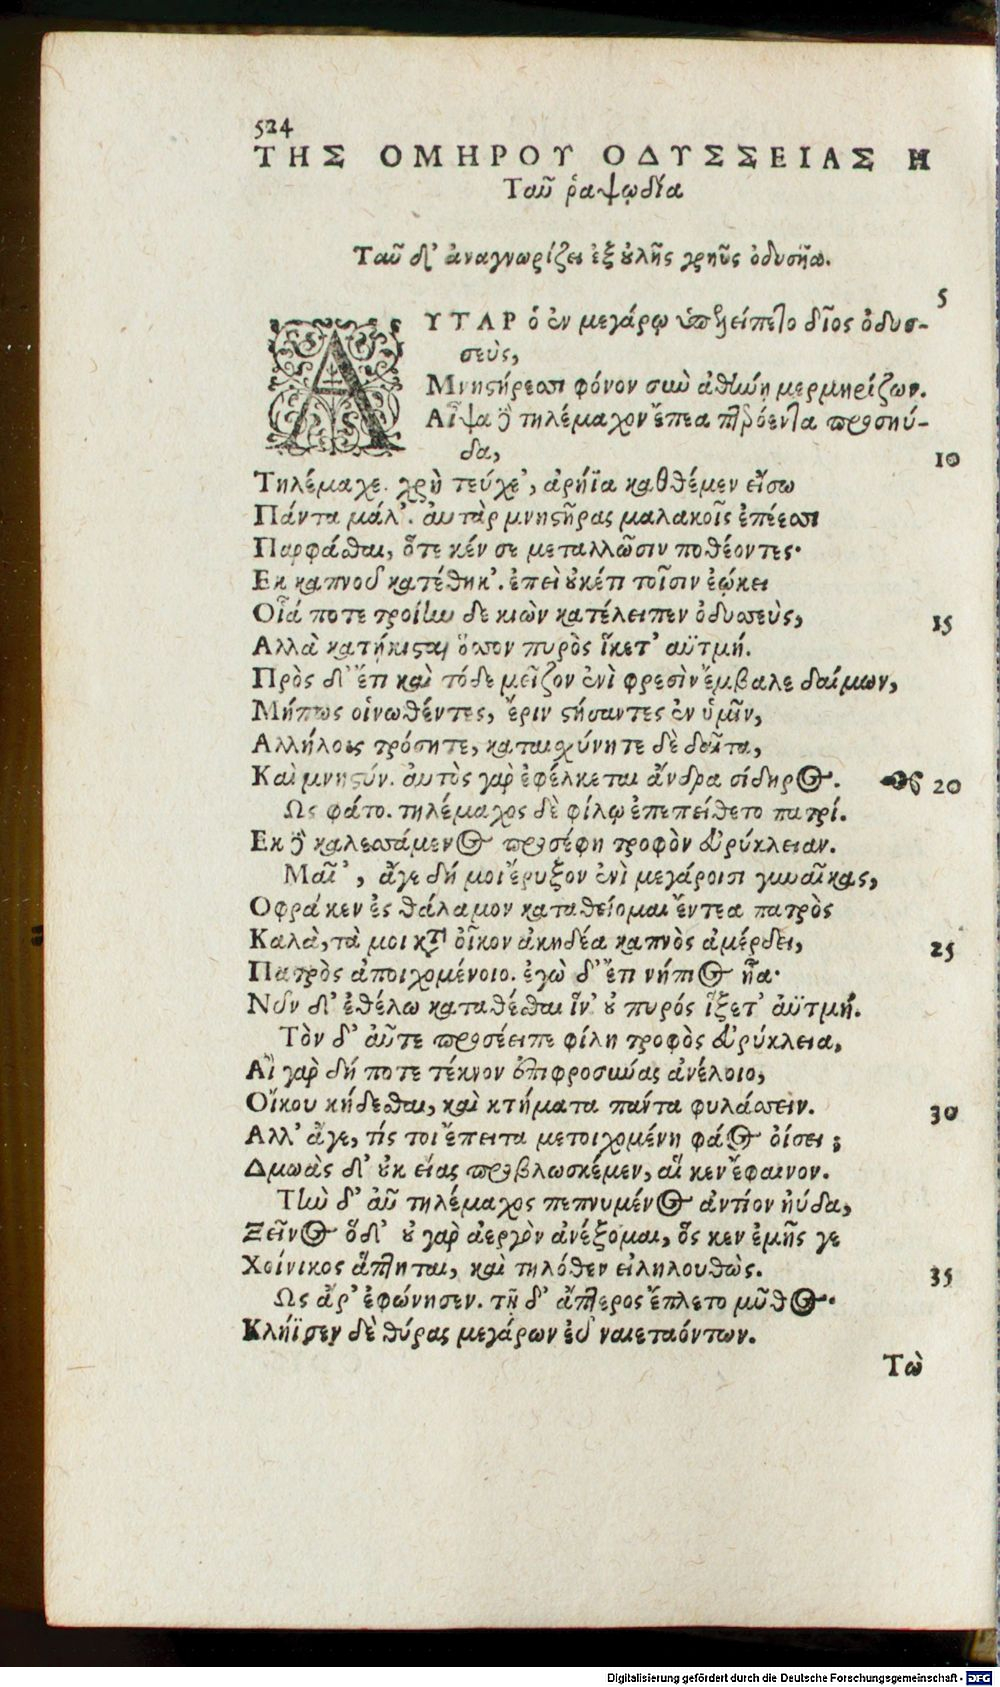 524
ΤΗΣ ΟΜΗΡΟΥ ΟΔΥΣΣΕΙΑΣ Η
Ταῦ ῥαψῳδία
Ταῦ δ' ἀναγνωρίζει ἐξ οὐλῆς γρηῦς ὀδυσῆα.
5
ΑΥΤΑΡ ὁ ἐν μεγάρῳ ὑπελείπετο δῖος ὀδυσ-
σεὺς,
Μνηστήρεσσι φόνον σὺν ἀθήνῃ μερμηρίζων.
Αἶψα δὲ τηλέμαχον ἔπεα πτερόεντα προσηύ-
δα,
10
Τηλέμαχε. χρὴ τεύχε', ἀρήϊα κατθέμεν εἴσω
Πάντα μάλ'. ἀυτὰρ μνηστῆρας μαλακοῖς ἐπέεσσι
Παρφάσθαι, ὅτε κέν σε μεταλλῶσιν ποθέοντες·
Εκ καπνοῦ κατέθηκ'. ἐπεὶ οὐκέτι τοῖσιν ἐῴκει
Οἷά ποτε τροίην δε κιὼν κατέλειπεν ὀδυσσεὺς,
15
Αλλὰ κατῄκισται ὅσσον πυρὸς ἵκετ' αϋτμή.
Πρὸς δ' ἔτι καὶ τόδε μεῖζον ἐνὶ φρεσὶν ἔμβαλε δαίμων,
Μήπως οἰνωθέντες, ἔριν στήσαντες ἐν ὑμῖν,
Αλλήλους τρώσητε, καταισχύνητε δὲ δαῖτα,
Καὶ μνηστύν. ἀυτὸς γὰρ ἐφέλκεται ἄνδρα σίδηρος.
20
Ως φάτο. τηλέμαχος δὲ φίλῳ ἐπεπείθετο πατρί.
Εκ δὲ καλεσσάμενος προσέφη τροφὸν εὐρύκλειαν.
Μαῖ', ἄγε δή μοι ἔρυξον ἐνὶ μεγάροισι γυναῖκας,
Οφρά κεν ἐς θάλαμον καταθείομαι ἔντεα πατρὸς
Καλὰ, τά μοι κατὰ οἶκον ἀκηδέα καπνὸς ἀμέρδει,
25
Πατρὸς ἀποιχομένοιο. ἐγὼ δ' ἔτι νήπιος ἦα·
Νῦν δ' ἐθέλω καταθέσθαι ἵν' οὐ πυρός ἵξετ' ἀϋτμή.
Τὸν δ' αὖτε προσέειπε φίλη τροφὸς εὐρύκλεια,
Αἲ γὰρ δή ποτε τέκνον ἐπιφροσύνας ἀνέλοιο,
Οἴκου κήδεσθαι, καὶ κτήματα πάντα φυλάσσειν.
30
Αλλ' ἄγε, τίς τοι ἔπειτα μετοιχομένη φάος οἴσει;
Δμωὰς δ' οὐκ εἴας προβλωσκέμεν, αἵ κεν ἔφαινον.
Τὴν δ' αὖ τηλέμαχος πεπνυμένος ἀντίον ηὐδα,
Ξεῖνος ὅδ' οὐ γὰρ ἀεργὸν ἀνέξομαι, ὅς κεν ἐμῆς γε
Χοίνικος ἅπτηται, καὶ τηλόθεν εἰληλουθὼς.
35
Ως ἄρ' ἐφώνησεν. τῇ δ' ἄπτερος ἔπλετο μῦθος·
Κλήϊσεν δὲ θύρας μεγάρων εὖ ναιεταόντων.
Τὼ
Digitalisierung gefördert durch die Deutsche Forschungsgemeinschaft - DFG